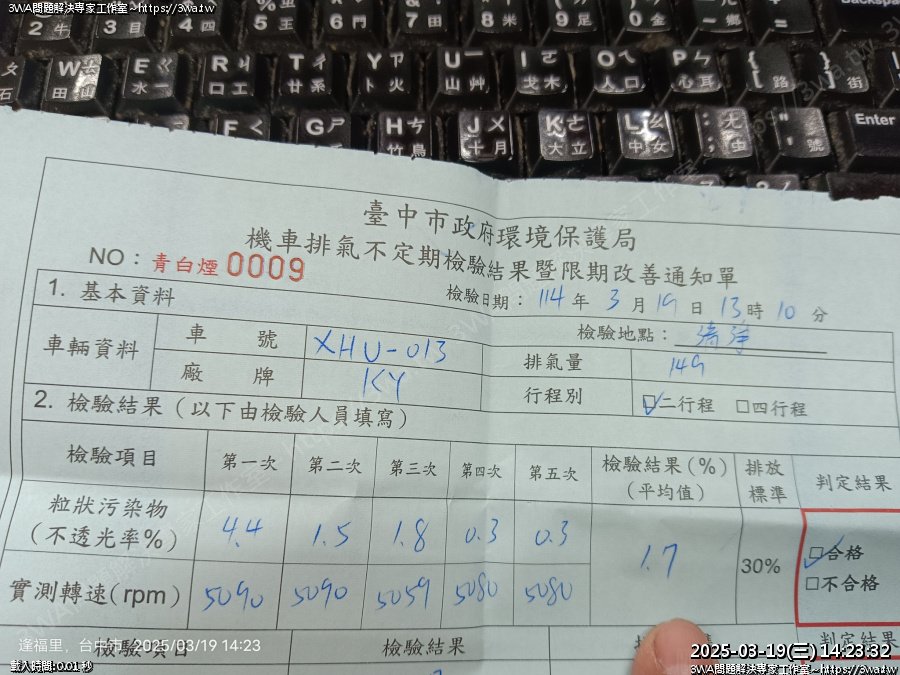 3WA問題解決專家工作室~https://3wa.tw
臺中市政府環境保護局
機車排氣不定期檢驗結果暨限期改善通知單
NO：青白煙 0009
檢驗日期：114 年 3 月 19 日 13 時 10 分
1. 基本資料
檢驗地點：
車輛資料
車 號 XHU-013
排氣量 149
廠 牌 KY
行程別 ☑二行程 □四行程
2. 檢驗結果（以下由檢驗人員填寫）
檢驗項目 第一次 第二次 第三次 第四次 第五次 檢驗結果(%)(平均值) 排放標準 判定結果
粒狀污染物(不透光率%) 4.4 1.5 1.8 0.3 0.3 1.7 30% ☑合格
實測轉速(rpm) 5090 5090 5059 5080 5080 □不合格
檢驗項目 檢驗結果 判定結果
逢福里，台中市 2025/03/19 14:23
載入時間:0.01 秒
2025-03-19(三) 14:23:32
3WA問題解決專家工作室~https://3wa.tw
W 田
E 水
R 口
T 廿
Y 卜
U 山
I 戈
O 人
P 心
{ [ 路
} ] 街
F
G
H 竹
J 十
K 大
L 中
Enter